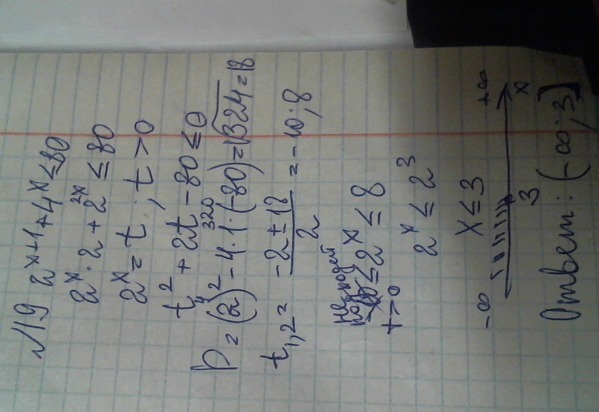 №19 2^(x+1) + 4^x ≤ 80
2^x · 2 + 2^(2x) ≤ 80
2^x = t ; t > 0
t² + 2t - 80 ≤ 0
4 320
D = (2)² - 4·1·(-80) = √324 = 18
t₁,₂ = (-2 ± 18)/2 = -10; 8
не подходит
-10 ≤ 2^x ≤ 8
t > 0
2^x ≤ 2³
x ≤ 3
-∞ 3 +∞ x
Ответ: (-∞; 3]